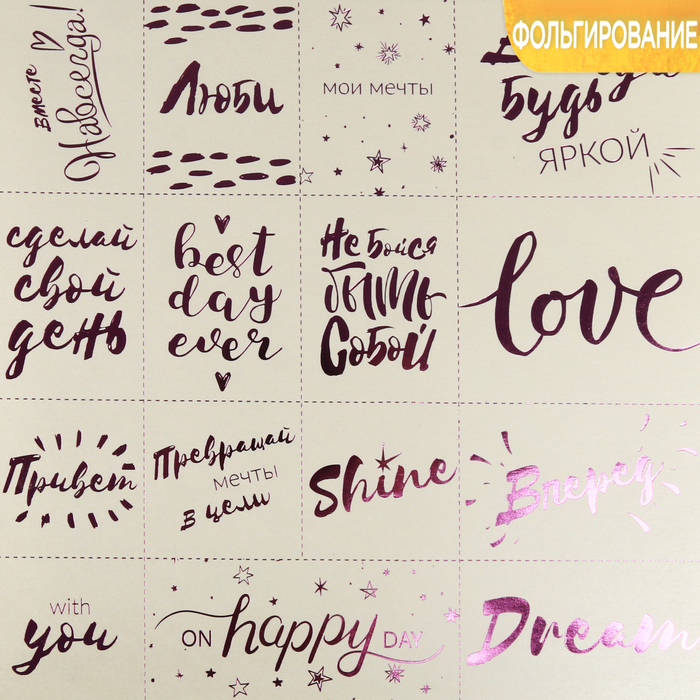 ФОЛЬГИРОВАНИЕ
Вместе
Навсегда!
Люби
мои мечты
будь
ЯРКОЙ
сделай
свой
день
best
day
ever
Не бойся
быть
Собой
love
Привет
Превращай
мечты
в цели
Shine
Вперед
with
you
ON happy DAY
Dream